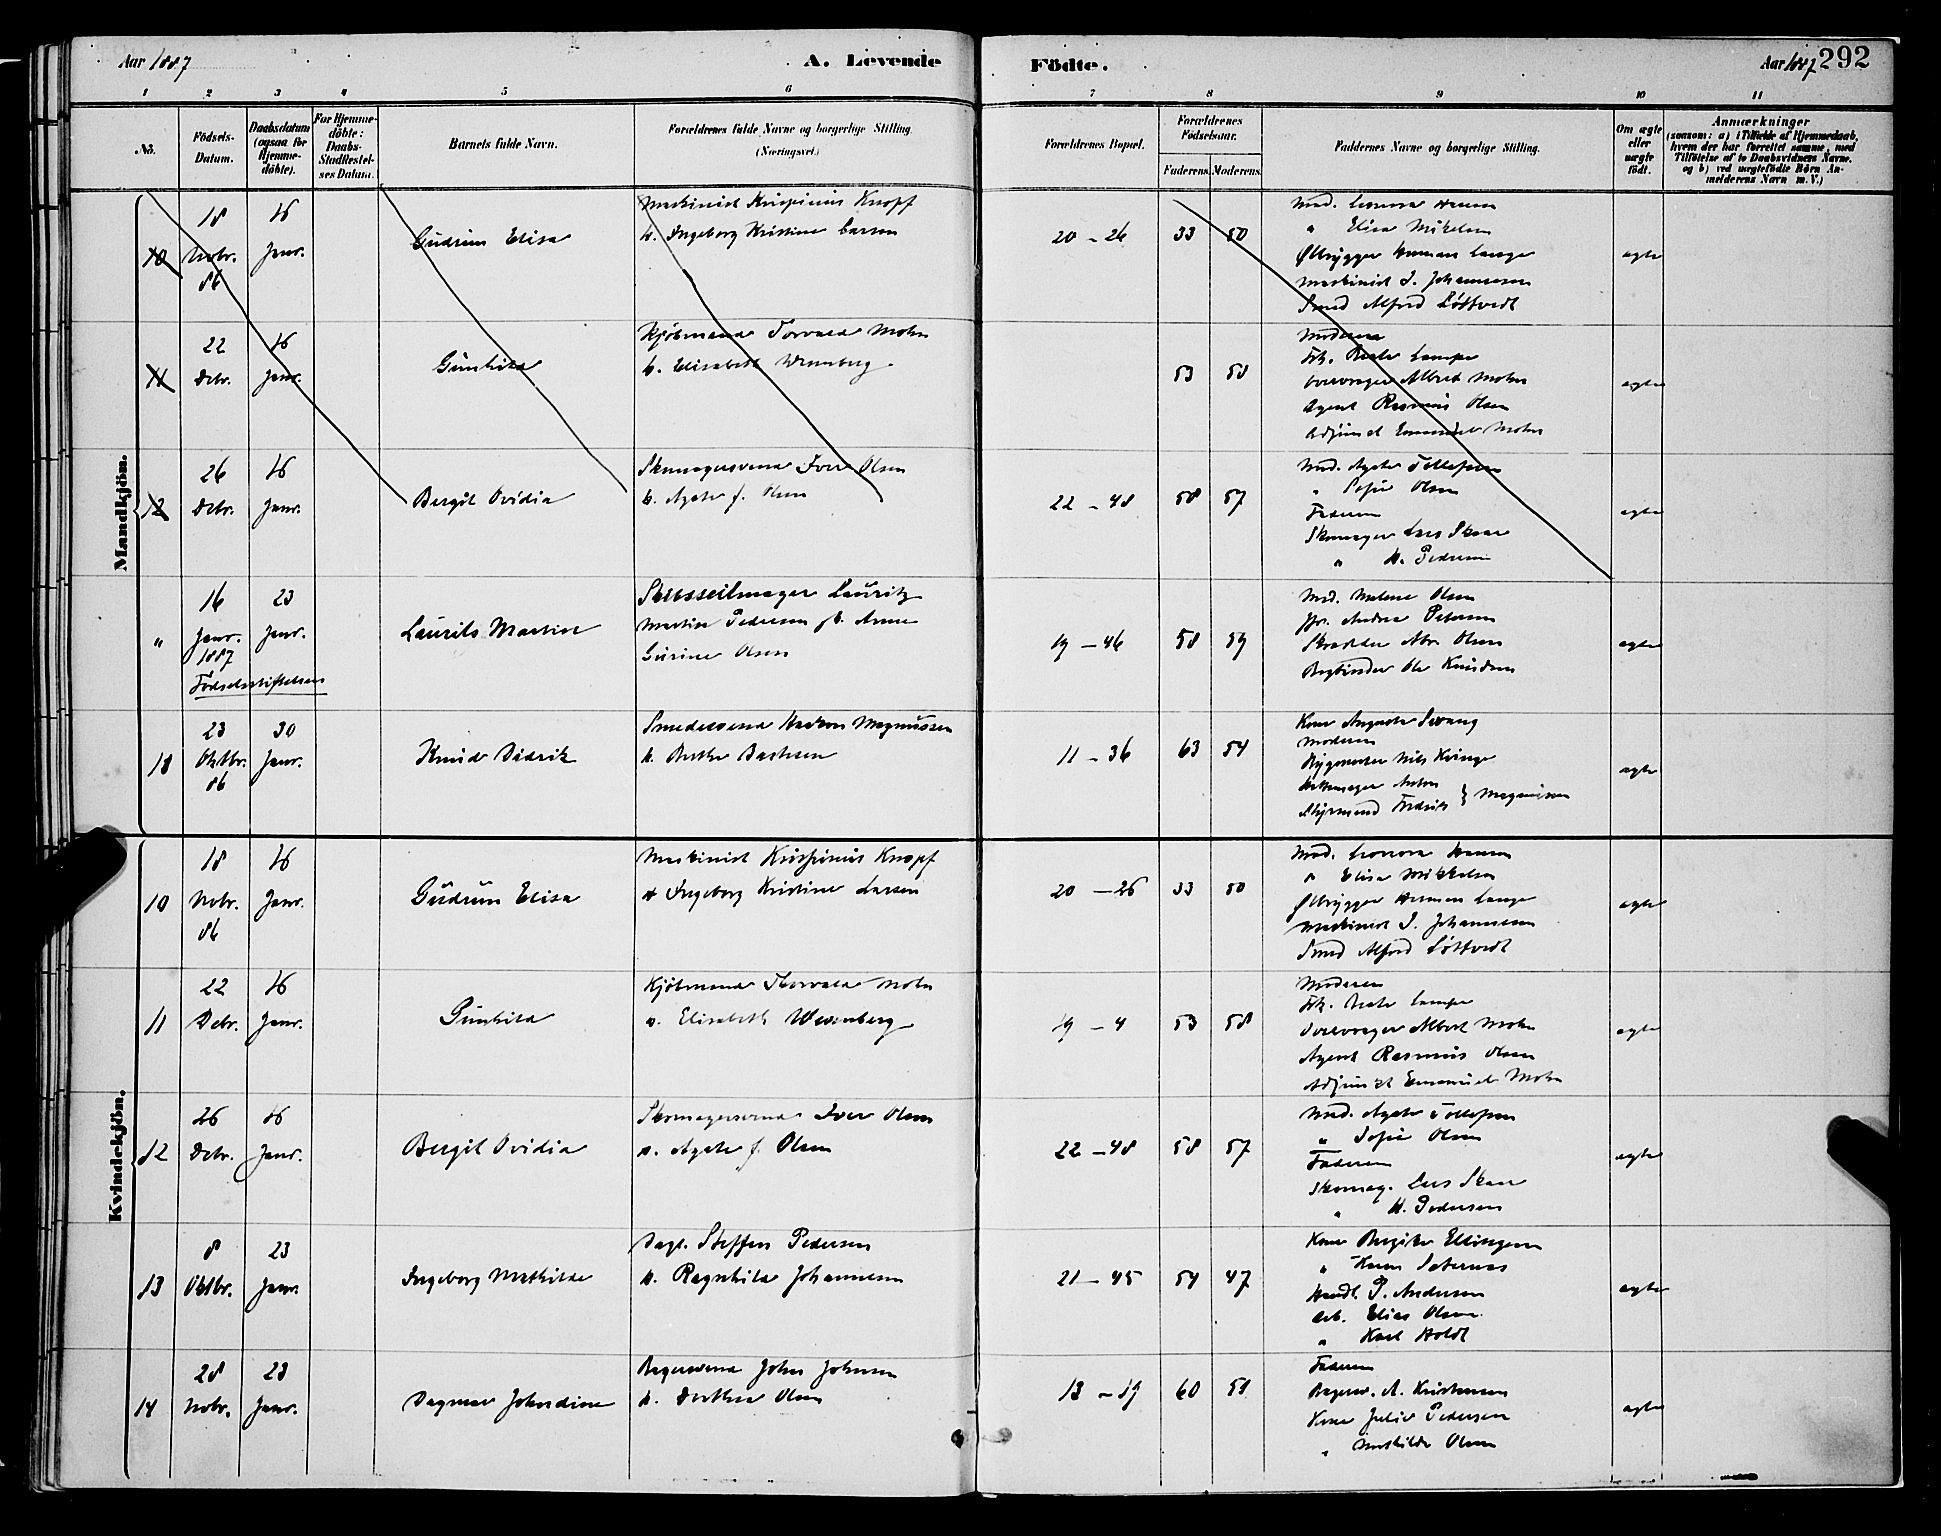 Aar 1887 A. Levende Fødte. Aar 1887 292
1 2 3 4 5 6 7 8 9 10 11
No. Födsels-Datum. Daabsdatum (ogsaa for Hjemme-döbte). For Hjemme-döbte: Daabs-Stadfæstelses Datum. Barnets fulde Navn. Forældrenes fulde Navne og borgerlige Stilling. (Næringsvei.) Forældrenes Bopæl. Forældrenes Födselsaar. Faderens. Moderens. Faddernes Navne og borgerlige Stilling. Om ægte eller uægte födt. Anmærkninger (saasom: a) i Tilfælde af Hjemmedaab, hvem der har forrettet samme, med Tilföielse af to Daabsvidners Navne. og b) ved uægtefödte Börn Anmelderens Navn m. V.)
Mandkjön.
10 18 Novbr. 86 16 Janr. Gudrun Elisa
Maskinist Krispinius Knopf
h. Ingeborg Kristine Larsen
20 - 26 33 50
Mad. Leonora Hansen
" Elisa Mikelsen
Ølbrygger Herman Lange
Maskinist J. Johannesen
Smed Alfred Løtvedt
ægte
11 22 Debr. 16 Janr. Gunhild
Kjøbmand Torvald Mohn
h. Elisabeth Wesenberg
53 58
Moderen
Frk. Lampe
Albert Mohn
Agent Rasmus Olsen
Adjunct Emanuel Mohn
ægte
12 26 Debr. 16 Janr. Bergit Ovidia
Skomagersvend Iver Olsen
h. Agate f. Olsen
22 - 48 58 57
Mad. Agate Tollefsen
" Sofie Olsen
Faderen
Skomager Lars Skaar
" H. Pedersen
ægte
" 16 Janr. 1887 23 Janr. Laurits Martin
Fødselsstiftelsen
Lauritz
Martin Pedersen h. Anne
Gurine Olsen
19 - 46 58 59
Mad. Malene Olsen
Jfr. Andrea Petersen
Skrædder Abr. Olsen
Bogbinder Ole Knudsen
ægte
18 23 Oktbr. 86 30 Janr. Knud Didrik
Smedesvend Haakon Magnussen
h. Berthe Bachsen
11 - 36 63 54
Kone Augusta
Moderen
Nils Kvinge
Anton
Styrmand Fredrik } Magnussen
ægte
Kvindekjön.
10 18 Novbr. 86 16 Janr. Gudrun Elisa
Maskinist Krispinius Knopf
h Ingeborg Kristine Larsen
20 - 26 33 50
Mad. Leonora Hansen
" Elisa Mikkelsen
Ølbrygger Herman Lange
Maskinist J. Johannesen
Smed Alfred Løtvedt
ægte
11 22 Debr. 16 Janr. Gunhild
Kjøbmand Thorvald Mohn
h. Elisabeth Wesenberg
19 - 4 53 58
Moderen
Frk. Lampe
Albert Mohn
Agent Rasmus Olsen
Adjunkt Emanuel Mohn
ægte
12 26 Debr. 16 Janr. Bergit Ovidia
Skomagersvend Iver Olsen
h. Agate f. Olsen
22 - 48 58 57
Mad. Agate Tollefsen
" Sofie Olsen
Faderen
Skomag. Lars Skaar
" H. Pedersen
ægte
13 8 Oktbr. 23 Janr. Ingeborg Mathilde
Dagl. Steffen Pedersen
h. Ragnhilda Johannesen
21 - 45 54 47
Kone Birgitte Ellingsen
" Karen
Handl. P. Andersen
Arb. Elias Olsen
" Karl Holdt
ægte
14 28 Novbr. 23 Janr. Dagmar Johndine
Bagersvend John Johnsen
h. Dorthea Olsen
13 - 19 60 58
Faderen
Bagersv. A. Kristensen
Kone Julie Pedersen
" Mathilde Olsen
ægte